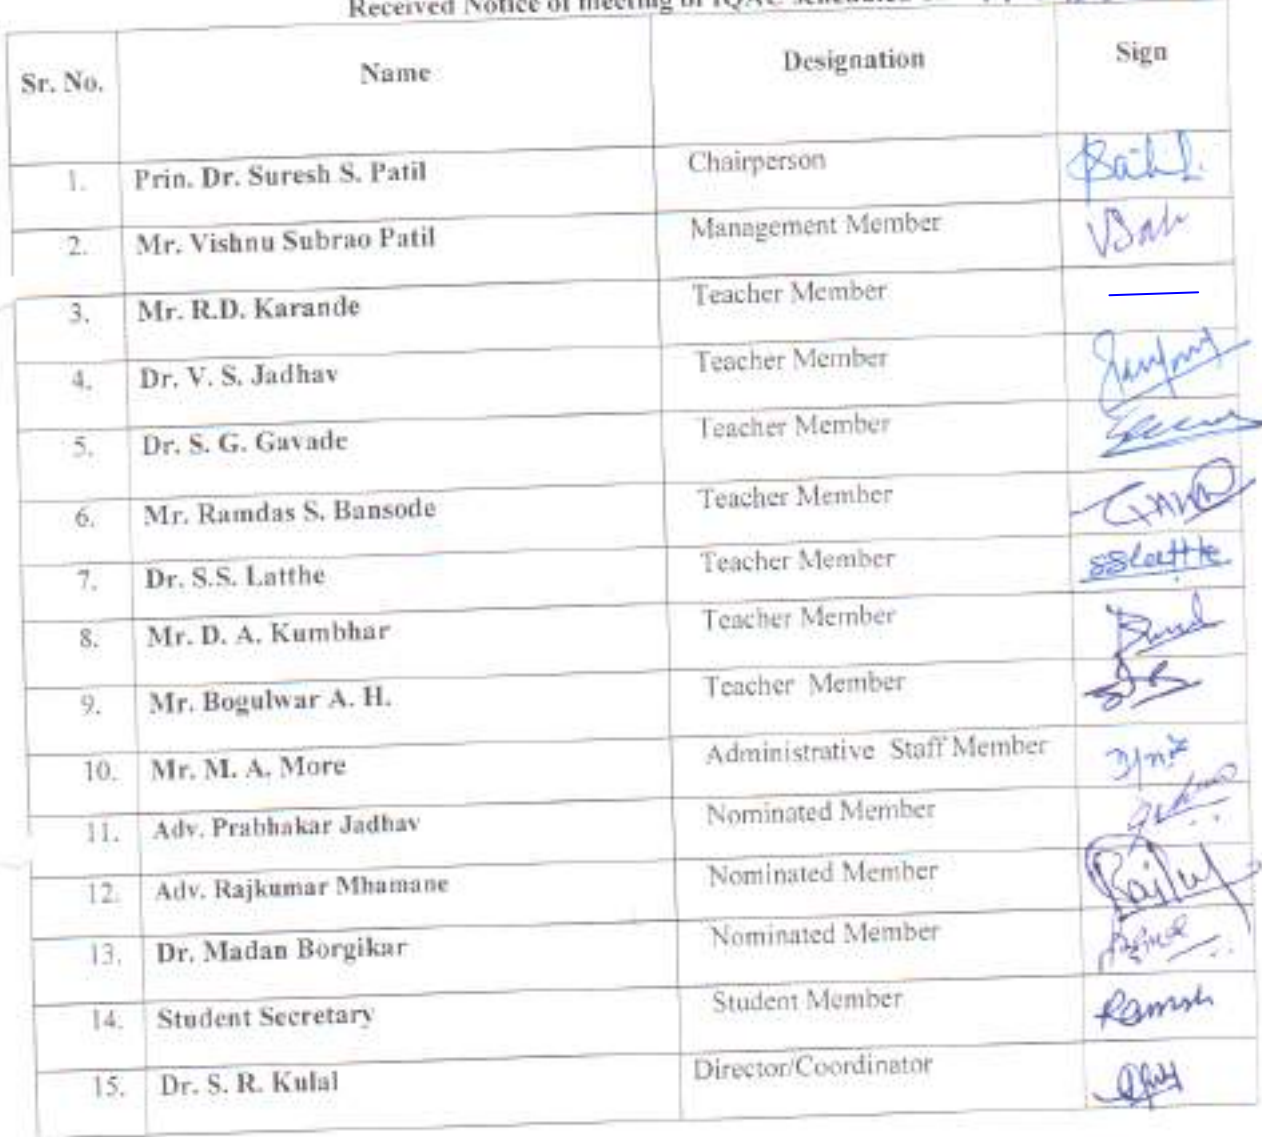 Received Notice of meeting of IQAC scheduled
Sr. No. Name Designation Sign
1. Prin. Dr. Suresh S. Patil Chairperson
2. Mr. Vishnu Subrao Patil Management Member
3. Mr. R.D. Karande Teacher Member
4. Dr. V. S. Jadhav Teacher Member
5. Dr. S. G. Gavade Teacher Member
6. Mr. Ramdas S. Bansode Teacher Member
7. Dr. S.S. Latthe Teacher Member sslatthe
8. Mr. D. A. Kumbhar Teacher Member
9. Mr. Bogulwar A. H. Teacher Member
10. Mr. M. A. More Administrative Staff Member
11. Adv. Prabhakar Jadhav Nominated Member
12. Adv. Rajkumar Mhamane Nominated Member
13. Dr. Madan Borgikar Nominated Member
14. Student Secretary Student Member
15. Dr. S. R. Kulal Director/Coordinator